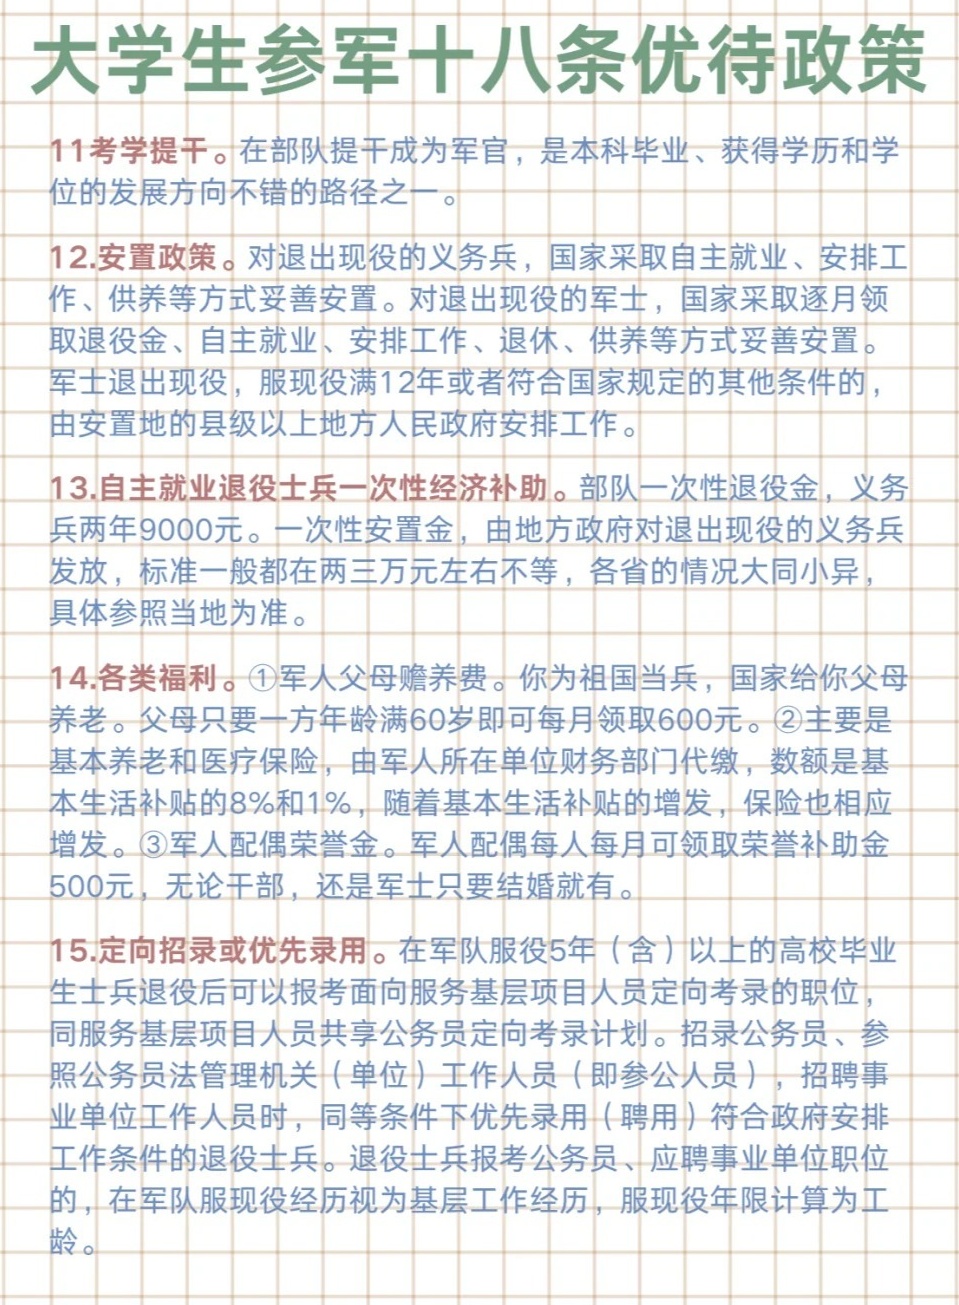 大学生参军十八条优待政策
11考学提干。在部队提干成为军官，是本科毕业、获得学历和学
位的发展方向不错的路径之一。
12.安置政策。对退出现役的义务兵，国家采取自主就业、安排工
作、供养等方式妥善安置。对退出现役的军士，国家采取逐月领
取退役金、自主就业、安排工作、退休、供养等方式妥善安置。
军士退出现役，服现役满12年或者符合国家规定的其他条件的，
由安置地的县级以上地方人民政府安排工作。
13.自主就业退役士兵一次性经济补助。部队一次性退役金，义务
兵两年9000元。一次性安置金，由地方政府对退出现役的义务兵
发放，标准一般都在两三万元左右不等，各省的情况大同小异，
具体参照当地为准。
14.各类福利。①军人父母赡养费。你为祖国当兵，国家给你父母
养老。父母只要一方年龄满60岁即可每月领取600元。②主要是
基本养老和医疗保险，由军人所在单位财务部门代缴，数额是基
本生活补贴的8%和1%，随着基本生活补贴的增发，保险也相应
增发。③军人配偶荣誉金。军人配偶每人每月可领取荣誉补助金
500元，无论干部，还是军士只要结婚就有。
15.定向招录或优先录用。在军队服役5年（含）以上的高校毕业
生士兵退役后可以报考面向服务基层项目人员定向考录的职位，
同服务基层项目人员共享公务员定向考录计划。招录公务员、参
照公务员法管理机关（单位）工作人员（即参公人员），招聘事
业单位工作人员时，同等条件下优先录用（聘用）符合政府安排
工作条件的退役士兵。退役士兵报考公务员、应聘事业单位职位
的，在军队服现役经历视为基层工作经历，服现役年限计算为工
龄。